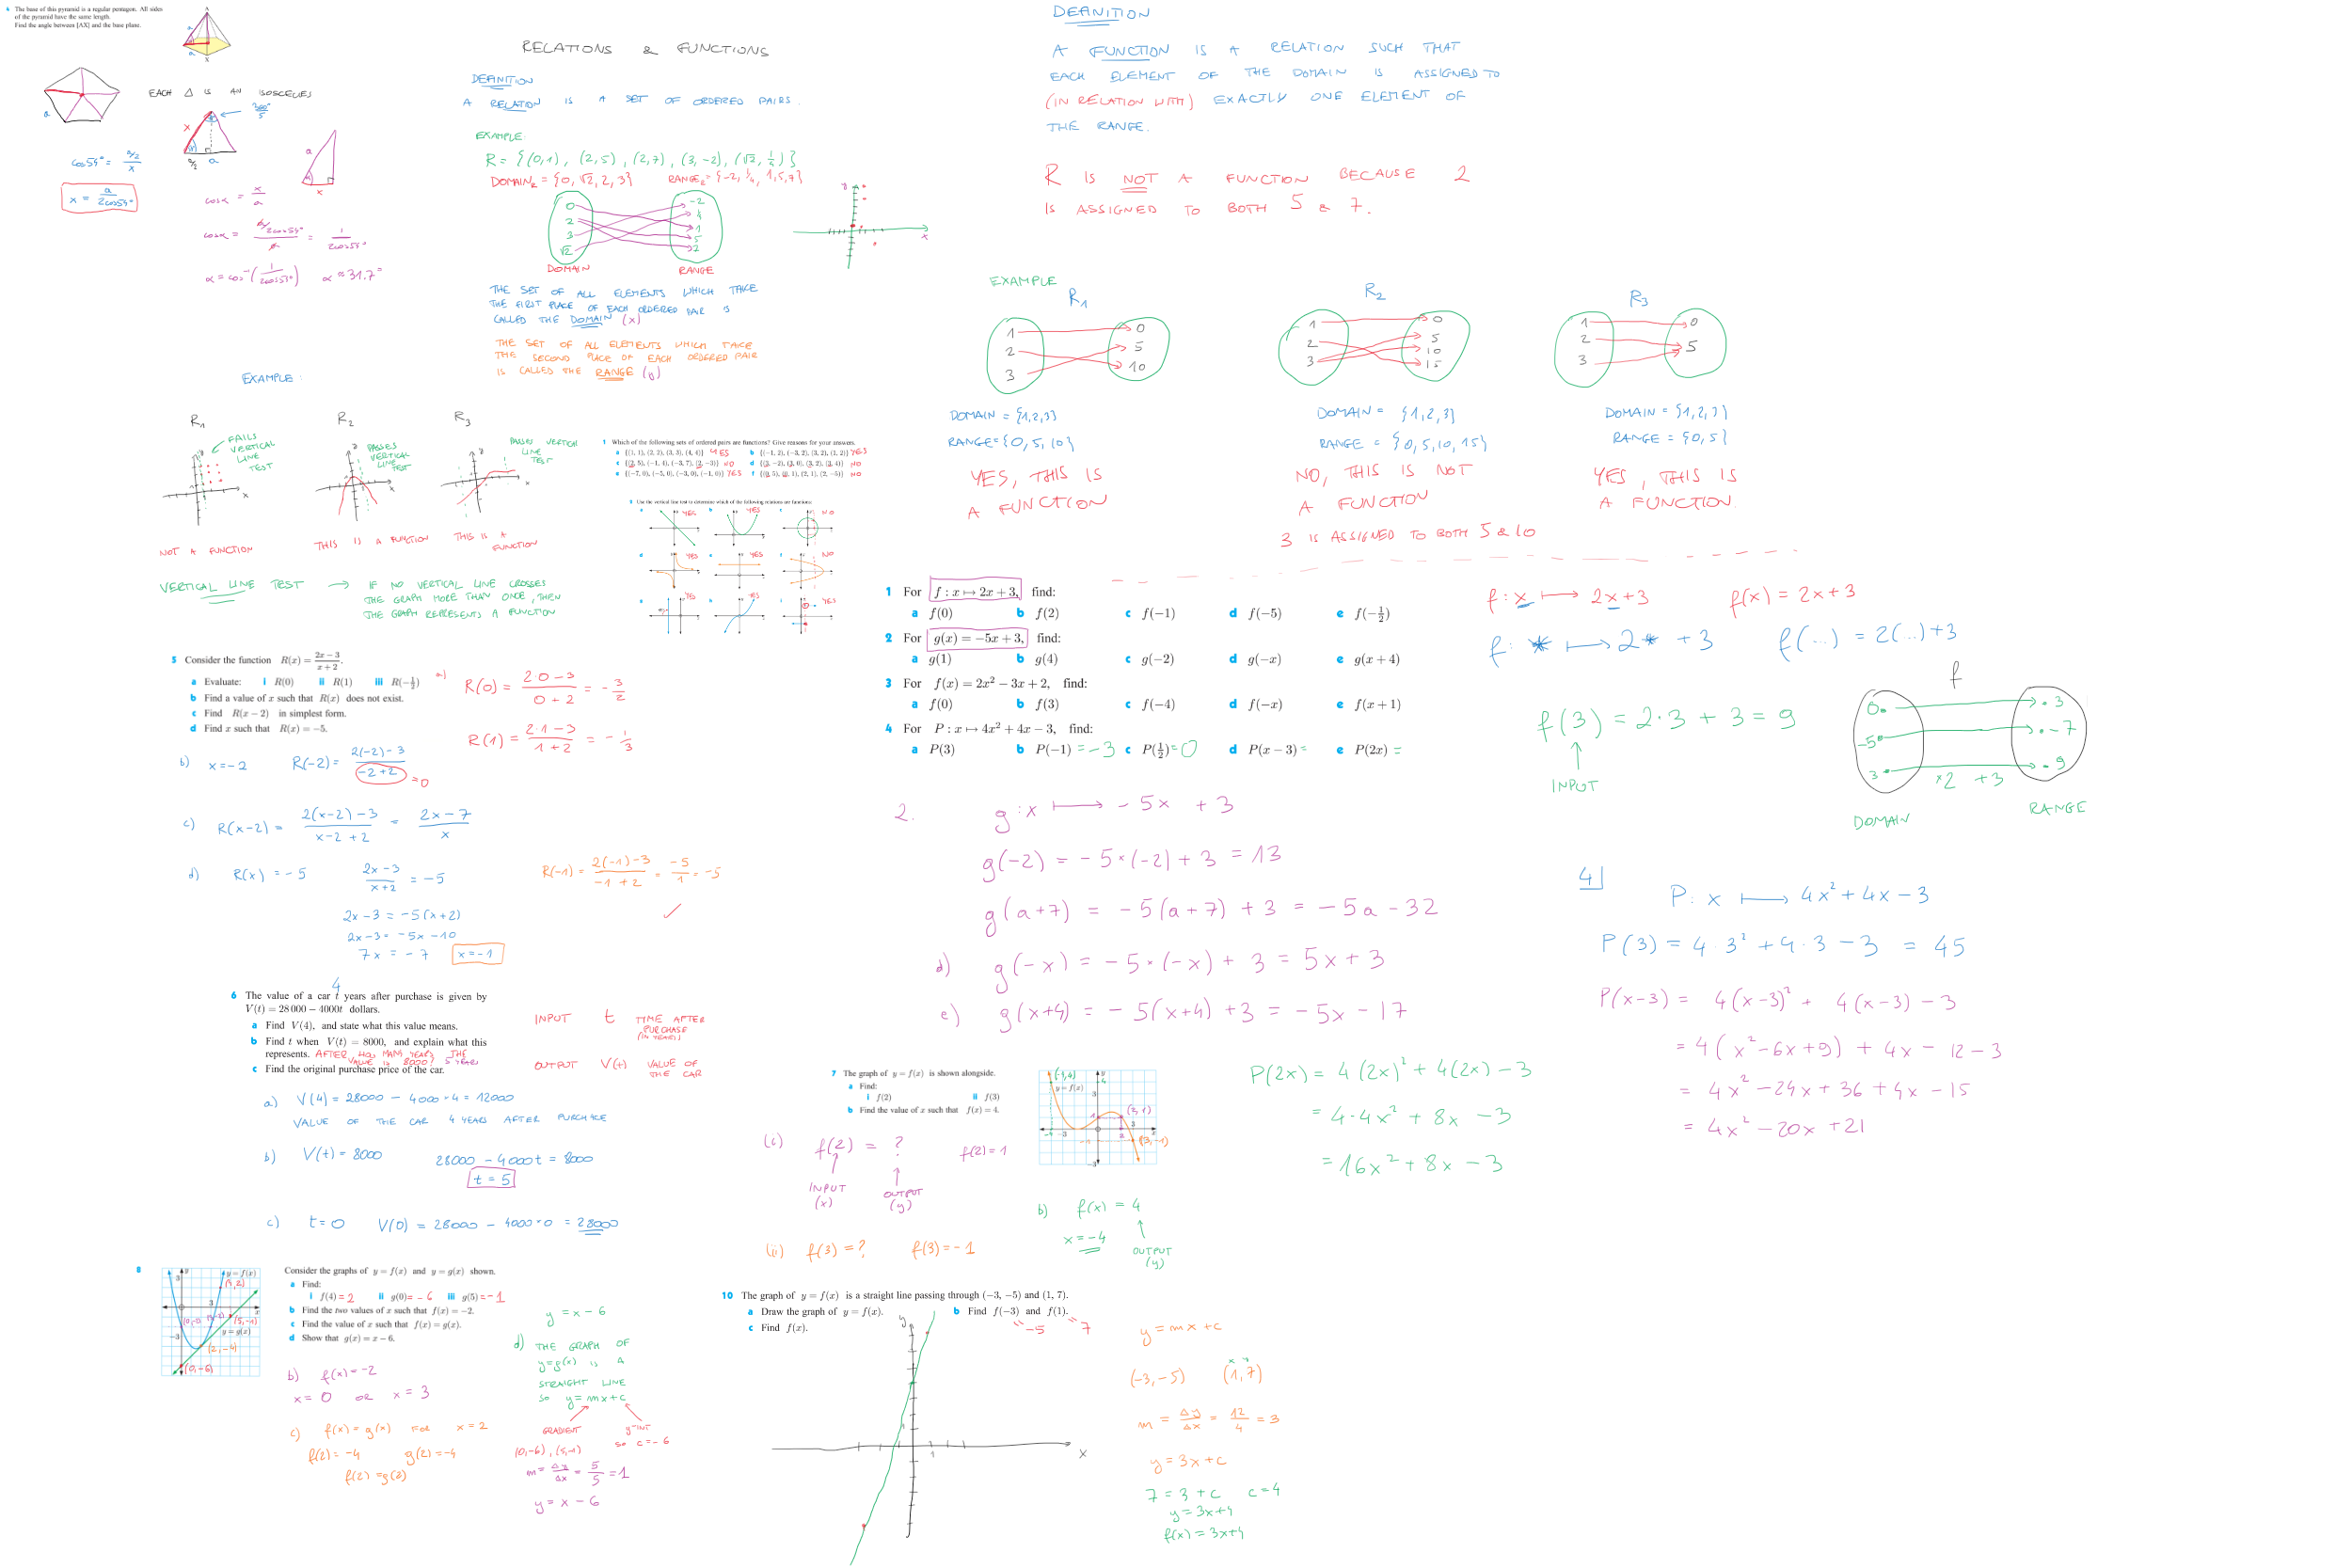 4 The base of this pyramid is a regular pentagon. All sides
of the pyramid have the same length.
Find the angle between [AX] and the base plane.
A
a
a
X
a
EACH Δ IS AN ISOSCELES
360°
5
x
a/2 a
cos54° = a/2 / x
x = a / 2cos54°
a
α
x
cosα = x/a
cosα = a/2cos54° / a = 1/2cos54°
α = cos⁻¹(1/2cos54°) α ≈ 31.7°
RELATIONS & FUNCTIONS
DEFINITION
A RELATION IS A SET OF ORDERED PAIRS.
EXAMPLE:
R = {(0,1), (2,5), (2,7), (3,-2), (√2, 1/4)}
DOMAIN_R = {0, √2, 2, 3} RANGE_R = {-2, 1/4, 1, 5, 7}
0
2
3
√2
-2
1/4
1
5
7
y
x
DOMAIN RANGE
THE SET OF ALL ELEMENTS WHICH TAKE
THE FIRST PLACE OF EACH ORDERED PAIR IS
CALLED THE DOMAIN (x)
THE SET OF ALL ELEMENTS WHICH TAKE
THE SECOND PLACE OF EACH ORDERED PAIR
IS CALLED THE RANGE (y)
DEFINITION
A FUNCTION IS A RELATION SUCH THAT
EACH ELEMENT OF THE DOMAIN IS ASSIGNED TO
(IN RELATION WITH) EXACTLY ONE ELEMENT OF
THE RANGE.
R IS NOT A FUNCTION BECAUSE 2
IS ASSIGNED TO BOTH 5 & 7.
EXAMPLE
R₁ R₂ R₃
1 0
2 5
3 10
1 0
2 5
3 10
15
1 0
2 5
3
DOMAIN = {1,2,3} DOMAIN = {1,2,3} DOMAIN = {1,2,3}
RANGE = {0,5,10} RANGE = {0,5,10,15} RANGE = {0,5}
YES, THIS IS
A FUNCTION
NO, THIS IS NOT
A FUNCTION
3 IS ASSIGNED TO BOTH 5 & 10
YES, THIS IS
A FUNCTION.
EXAMPLE:
R₁ R₂ R₃
FAILS
VERTICAL
LINE
TEST
PASSES
VERTICAL
LINE
TEST
PASSES VERTICAL
LINE
TEST
NOT A FUNCTION
THIS IS A FUNCTION
THIS IS A
FUNCTION
VERTICAL LINE TEST → IF NO VERTICAL LINE CROSSES
THE GRAPH MORE THAN ONCE, THEN
THE GRAPH REPRESENTS A FUNCTION
1 Which of the following sets of ordered pairs are functions? Give reasons for your answers.
a {(1, 1), (2, 2), (3, 3), (4, 4)} YES b {(−1, 2), (−3, 2), (3, 2), (1, 2)} YES
c {(2, 5), (−1, 4), (−3, 7), (2, −3)} NO d {(3, −2), (3, 0), (3, 2), (3, 4)} NO
e {(−7, 0), (−5, 0), (−3, 0), (−1, 0)} YES f {(0, 5), (0, 1), (2, 1), (2, −5)} NO
Use the vertical line test to determine which of the following relations are functions:
a YES b YES c NO
d YES e YES f NO
g YES h YES i YES
1 For f : x ↦ 2x + 3, find:
a f(0) b f(2) c f(−1) d f(−5) e f(−½)
2 For g(x) = −5x + 3, find:
a g(1) b g(4) c g(−2) d g(−x) e g(x + 4)
3 For f(x) = 2x² − 3x + 2, find:
a f(0) b f(3) c f(−4) d f(−x) e f(x + 1)
4 For P : x ↦ 4x² + 4x − 3, find:
a P(3) b P(−1) = −3 c P(½) = 0 d P(x − 3) = e P(2x) =
f: x ↦ 2x+3 f(x) = 2x+3
f: * ↦ 2* + 3 f(...) = 2(...)+3
f(3) = 2·3 + 3 = 9
INPUT
f
0 3
-5 -7
3 ×2 +3 9
DOMAIN RANGE
5 Consider the function R(x) = (2x − 3)/(x + 2).
a Evaluate: i R(0) ii R(1) iii R(−½)
b Find a value of x such that R(x) does not exist.
c Find R(x − 2) in simplest form.
d Find x such that R(x) = −5.
a) R(0) = (2·0−3)/(0+2) = −3/2
R(1) = (2·1−3)/(1+2) = −1/3
b) x = −2 R(−2) = (2(−2)−3)/(−2+2) = 0
c) R(x−2) = (2(x−2)−3)/(x−2+2) = (2x−7)/x
d) R(x) = −5 (2x−3)/(x+2) = −5
R(−1) = (2(−1)−3)/(−1+2) = −5/1 = −5 ✓
2x−3 = −5(x+2)
2x−3 = −5x −10
7x = −7 x = −1
2. g: x ↦ −5x + 3
g(−2) = −5·(−2) + 3 = 13
g(a+7) = −5(a+7) + 3 = −5a −32
d) g(−x) = −5·(−x) + 3 = 5x+3
e) g(x+4) = −5(x+4) +3 = −5x −17
4 P: x ↦ 4x² + 4x − 3
P(3) = 4·3² + 4·3 − 3 = 45
P(x−3) = 4(x−3)² + 4(x−3) − 3
= 4(x²−6x+9) + 4x − 12 − 3
= 4x² − 24x + 36 + 4x − 15
= 4x² − 20x + 21
P(2x) = 4(2x)² + 4(2x) − 3
= 4·4x² + 8x − 3
= 16x² + 8x − 3
4
6 The value of a car t years after purchase is given by
V(t) = 28 000 − 4000t dollars.
a Find V(4), and state what this value means.
b Find t when V(t) = 8000, and explain what this
represents. AFTER HOW MANY YEARS THE
VALUE IS 8000? 5 YEARS
c Find the original purchase price of the car.
INPUT t TIME AFTER
PURCHASE
(IN YEARS)
OUTPUT V(t) VALUE OF
THE CAR
a) V(4) = 28000 − 4000·4 = 12000
VALUE OF THE CAR 4 YEARS AFTER PURCHASE
b) V(t) = 8000 28000 − 4000t = 8000
t = 5
c) t = 0 V(0) = 28000 − 4000·0 = 28000
7 The graph of y = f(x) is shown alongside.
a Find:
i f(2) ii f(3)
b Find the value of x such that f(x) = 4.
(-4,4)
y = f(x)
(2,1)
(3,-1)
(i) f(2) = ? f(2) = 1
INPUT
(x)
OUTPUT
(y)
(ii) f(3) = ? f(3) = −1
b) f(x) = 4
x = −4
OUTPUT
(y)
8 Consider the graphs of y = f(x) and y = g(x) shown.
a Find:
i f(4) = 2 ii g(0) = −6 iii g(5) = −1
b Find the two values of x such that f(x) = −2.
c Find the value of x such that f(x) = g(x).
d Show that g(x) = x − 6.
y = f(x)
(4,2)
(0,-2) (3,-2) (5,-1)
y = g(x)
(2,-4)
(0,-6)
b) f(x) = −2
x = 0 OR x = 3
c) f(x) = g(x) FOR x = 2
f(2) = −4 g(2) = −4
f(2) = g(2)
y = x − 6
d) THE GRAPH OF
y = g(x) IS A
STRAIGHT LINE
SO y = mx+c
GRADIENT y-INT
SO c = −6
(0,-6), (5,-1)
m = Δy/Δx = 5/5 = 1
y = x − 6
10 The graph of y = f(x) is a straight line passing through (−3, −5) and (1, 7).
a Draw the graph of y = f(x). b Find f(−3) and f(1).
c Find f(x).
-5 7
y
1
1
x
y = mx + c
(-3,-5) (1,7)
x y
m = Δy/Δx = 12/4 = 3
y = 3x + c
7 = 3 + c c = 4
y = 3x+4
f(x) = 3x+4